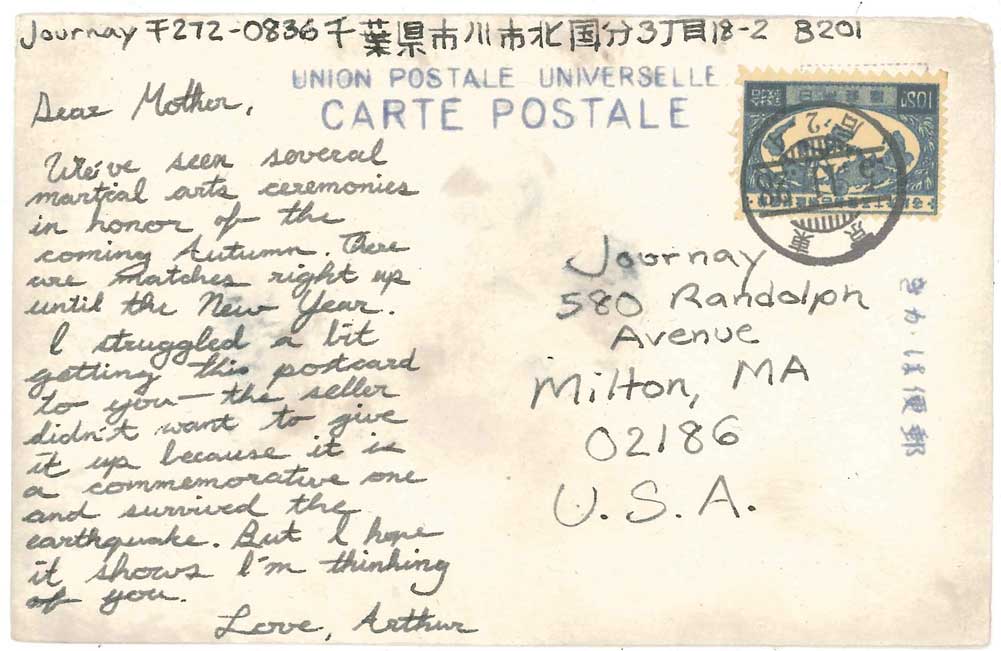 Journay 〒272-0836 千葉県市川市北国分3丁目18-2 B201
UNION POSTALE UNIVERSELLE
CARTE POSTALE
Dear Mother,
We've seen several
martial arts ceremonies
in honor of the
coming Autumn. There
are matches right up
until the New Year.
I struggled a bit
getting this postcard
to you— the seller
didn't want to give
it up because it is
a commemorative one
and survived the
earthquake. But I hope
it shows I'm thinking
of you.
Love, Arthur
Journay
580 Randolph
Avenue
Milton, MA
02186
U.S.A.
きか・は便郵
東京